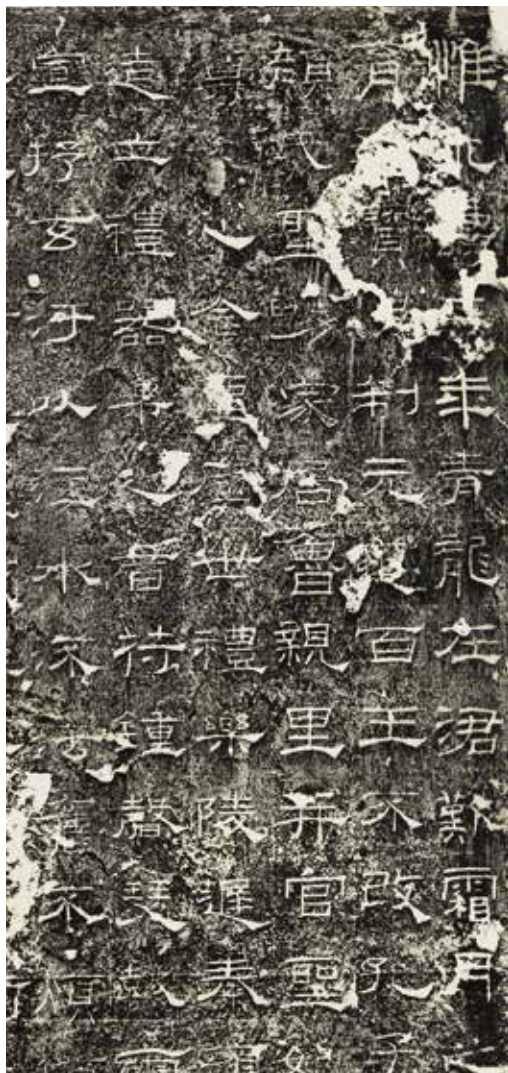 惟永壽年青龍在涒歎霜月之
育寶制元道百王不改孔子
顏氏聖舅家居魯親里并官聖妃
尊心念聖歷世禮樂陵遲秦項
造立禮器樂之音苻鍾磬瑟鼓雷
宣抒玄汙以注水流法舊不煩